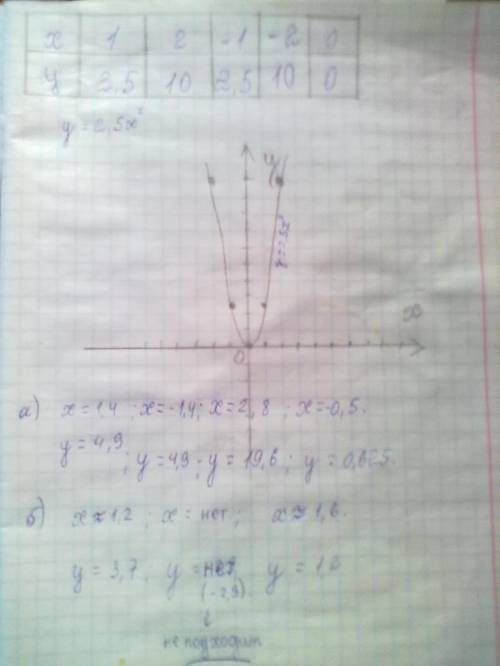 x 1 2 -1 -2 0
y 2,5 10 2,5 10 0
y = 2,5x²
y
x
0
а) x = 1,4 ; x = -1,4; x = 2,8 ; x = -0,5.
y = 4,9 ; y = 4,9 ; y = 19,6 ; y = 0,625.
б) x ≈ 1,2 ; x = нет ; x ≈ 1,6.
y = 3,7 y = нет y =
(-2,9)
не подходит